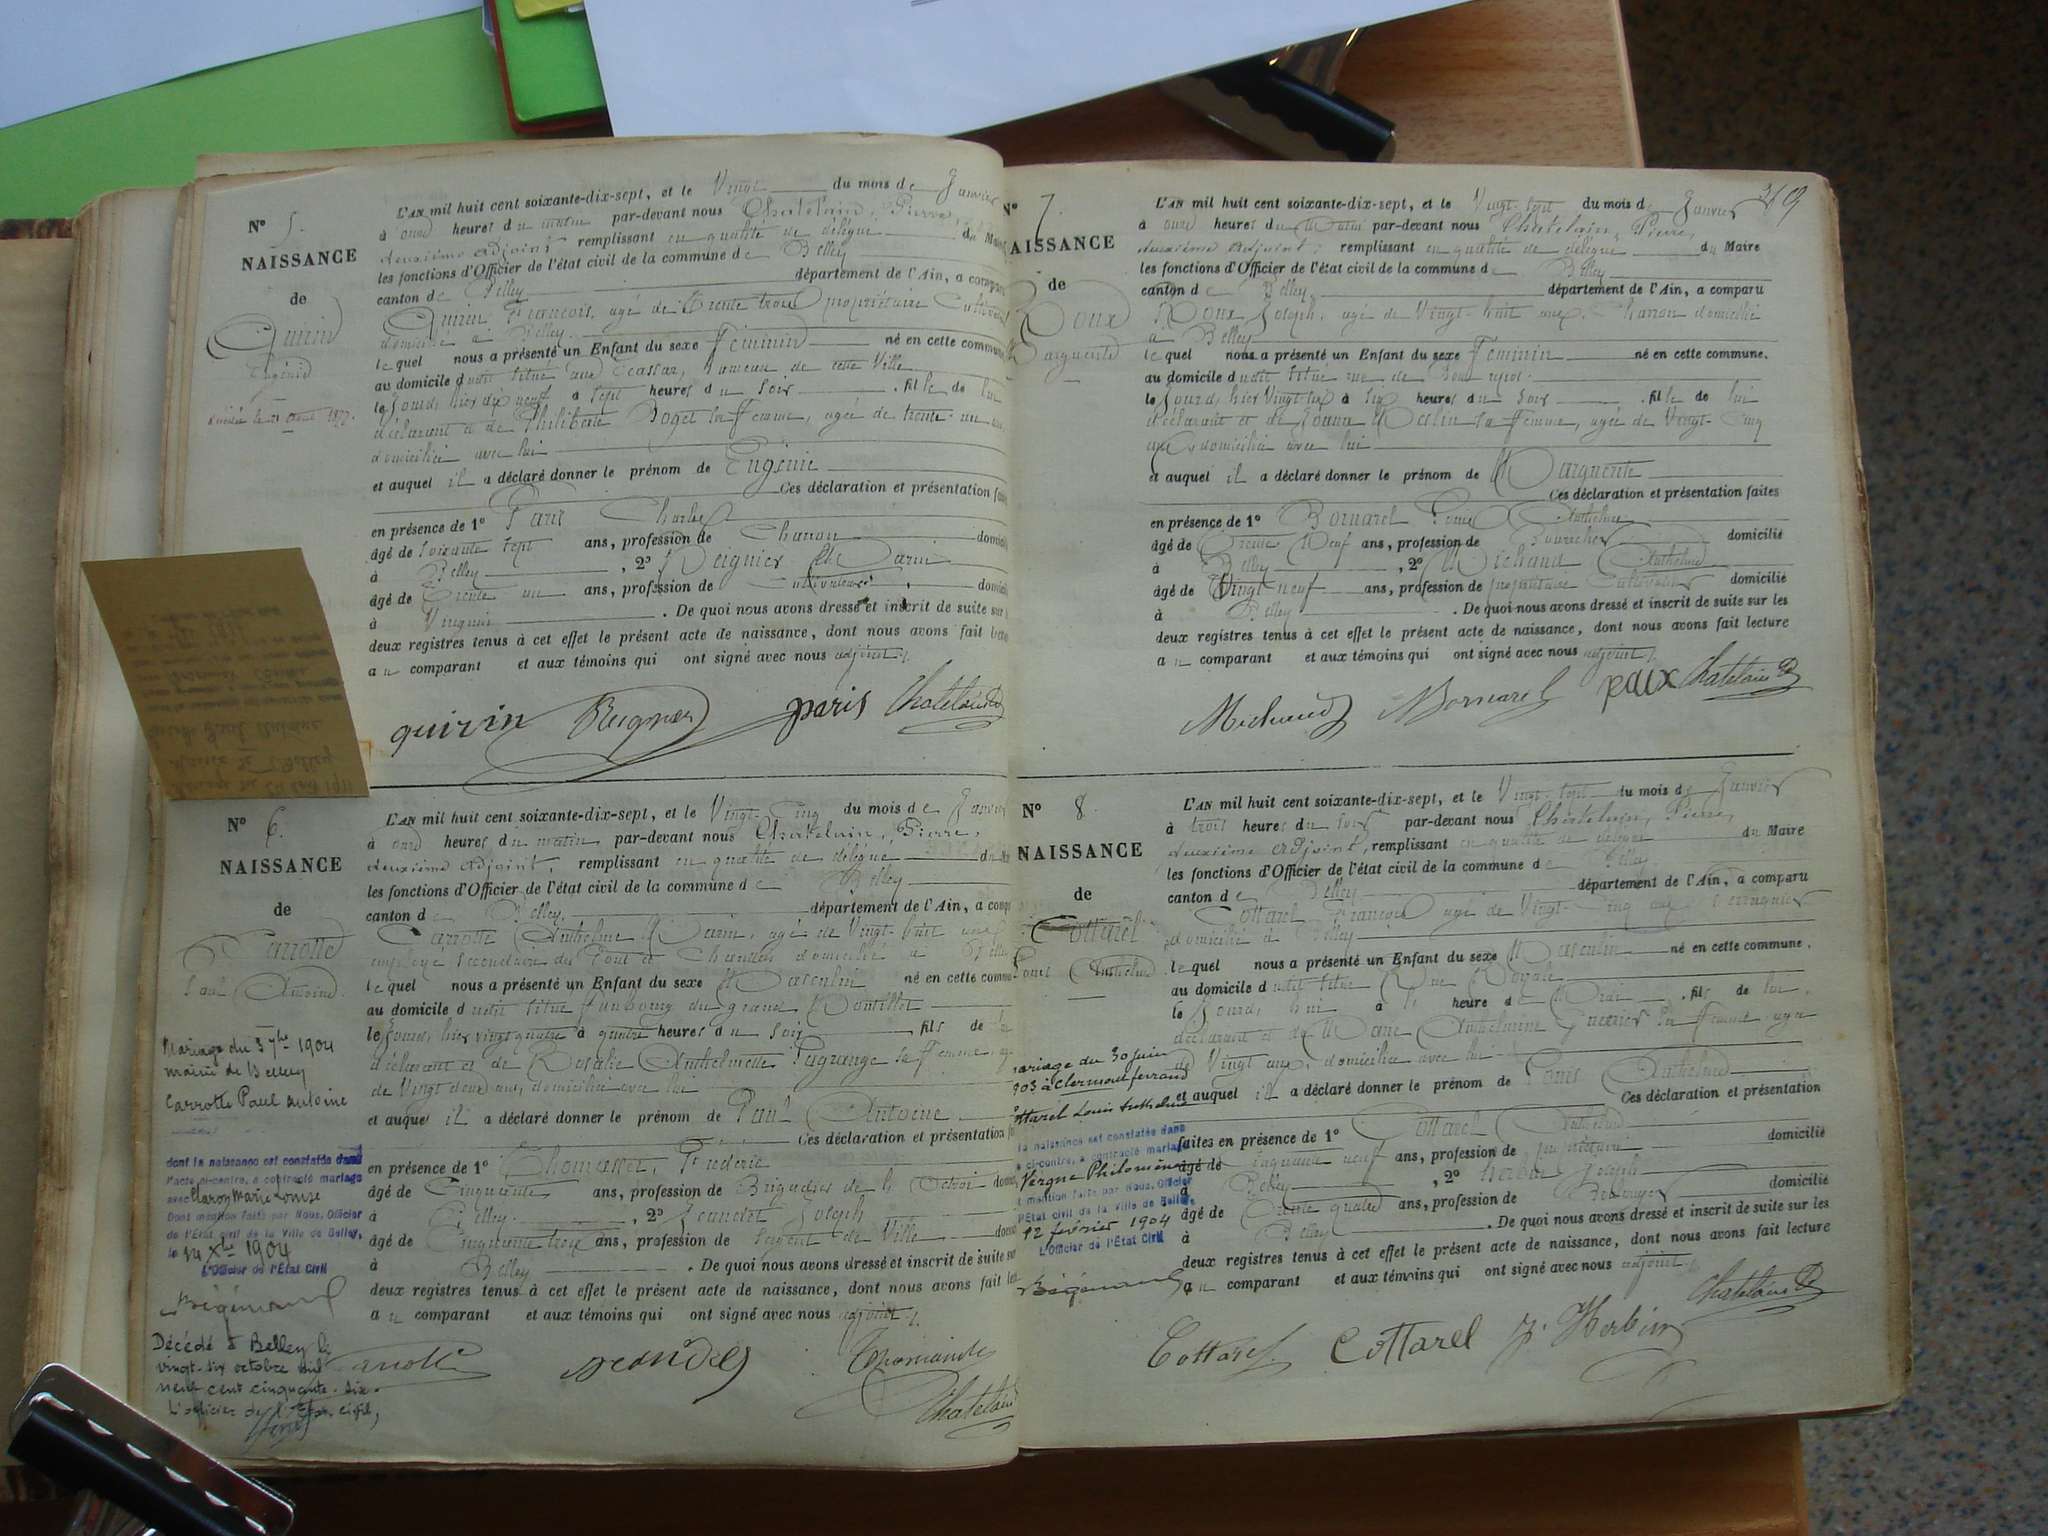 N° 5.
NAISSANCE
de
Quirin
Eugénie
décédée le 21 août 1877.
L'AN mil huit cent soixante-dix-sept, et le Vingt du mois de Janvier
à onze heures du matin par-devant nous Chatelain, Pierre,
deuxième adjoint, remplissant en qualité de délégué du Maire
les fonctions d'Officier de l'état civil de la commune de Belley
canton de Belley département de l'Ain, a comparu
Quirin François, agé de trente trois propriétaire Cultivateur
domicilié à Belley
le quel nous a présenté un Enfant du sexe Féminin né en cette commune
au domicile du dit situé aux Ecassaz, hameau de cette Ville
le jourd, hier dix neuf à sept heures du soir . fille de lui
déclarant et de Philiberte Boget sa Femme, agée de trente un ans,
domiciliée avec lui
et auquel il a déclaré donner le prénom de Eugénie
Ces déclaration et présentation faites
en présence de 1° Paris Charles
âgé de soixante sept ans, profession de Charron domicilié
à Belley , 2° Reignier Marin
âgé de Trente un ans, profession de cultivateur, domicilié
à . De quoi nous avons dressé et inscrit de suite sur
deux registres tenus à cet effet le présent acte de naissance, dont nous avons fait lecture
au comparant et aux témoins qui ont signé avec nous adjoint
quirin Reignier paris Chatelain
N° 6.
NAISSANCE
de
Carrotte
Paul Antoine.
Mariage du 3 7bre 1904
mairie de Belley
Carrotte Paul Antoine
dont la naissance est constatée dans
l'acte ci-contre, a contracté mariage
avec Claron Marie Louise
Dont mention faite par Nous, Officier
de l'Etat civil de la Ville de Belley,
le 14 Xbre 1904
L'Officier de l'État Civil
Décédé à Belley le
vingt-six octobre mil
neuf cent cinquante-six.
L'officier de l'Etat civil,
L'AN mil huit cent soixante-dix-sept, et le Vingt-Cinq du mois de Janvier
à onze heures du matin par-devant nous Chatelain, Pierre,
deuxième adjoint, remplissant en qualité de délégué du Maire
les fonctions d'Officier de l'état civil de la commune de Belley
canton de Belley département de l'Ain, a comparu
Carrotte Anthelme Marin, agé de Vingt huit ans
employé secondaire des Ponts et Chaussées domicilié à Belley
le quel nous a présenté un Enfant du sexe Masculin né en cette commune
au domicile du dit situé Faubourg du grand
le jourd, hier vingt quatre à quatre heures du soir fils de lui
déclarant et de Rosalie Anthelmette Lagrange sa Femme, agée
de Vingt deux ans, domiciliée avec lui
et auquel il a déclaré donner le prénom de Paul Antoine
Ces déclaration et présentation
en présence de 1° Thomasset, Frédéric
âgé de Cinquante ans, profession de Brigadier de l'Octroi domicilié
à Belley , 2° Jeandet Joseph
âgé de Cinquante trois ans, profession de Sergent de Ville domicilié
à Belley . De quoi nous avons dressé et inscrit de suite sur
deux registres tenus à cet effet le présent acte de naissance, dont nous avons fait
au comparant et aux témoins qui ont signé avec nous adjoint
Chatelain
N° 7.
NAISSANCE
de
Roux
Marguerite
369
L'AN mil huit cent soixante-dix-sept, et le Vingt-sept du mois de Janvier
à onze heures du Matin par-devant nous Chatelain, Pierre,
deuxième adjoint, remplissant en qualité de délégué du Maire
les fonctions d'Officier de l'état civil de la commune de Belley
canton de Belley département de l'Ain, a comparu
Roux Joseph, agé de Vingt-huit ans, Charron domicilié
à Belley
le quel nous a présenté un Enfant du sexe Féminin né en cette commune.
au domicile du dit situé rue de Bon repos
le jourd, hier Vingt six à six heures du soir . fille de lui
déclarant et de sa Femme, agée de Vingt-Cinq
ans domiciliée avec lui
et auquel il a déclaré donner le prénom de Marguerite
Ces déclaration et présentation faites
en présence de 1° Bornarel Louis Anthelme
âgé de Trente Neuf ans, profession de domicilié
à Belley , 2° Michaud Anthelme
âgé de Vingt neuf ans, profession de propriétaire Cultivateur domicilié
à Belley . De quoi nous avons dressé et inscrit de suite sur les
deux registres tenus à cet effet le présent acte de naissance, dont nous avons fait lecture
au comparant et aux témoins qui ont signé avec nous adjoint
Michaud Bornarel roux Chatelain
N° 8.
NAISSANCE
de
Cottarel
Louis Anthelme
mariage du 30 juin
1903 à Clermont ferrand
Cottarel Louis Anthelme
la naissance est constatée dans
ci-contre, a contracté mariage
Vergne Philomène
mention faite par Nous, Officier
l'Etat civil de la Ville de Belley,
12 février 1904
L'Officier de l'État Civil
L'AN mil huit cent soixante-dix-sept, et le Vingt-sept du mois de Janvier
à trois heures du soir par-devant nous Chatelain, Pierre,
deuxième adjoint, remplissant en qualité de délégué du Maire
les fonctions d'Officier de l'état civil de la commune de Belley
canton de Belley département de l'Ain, a comparu
Cottarel François agé de Vingt-Cinq ans
domicilié à Belley
le quel nous a présenté un Enfant du sexe Masculin né en cette commune.
au domicile du dit situé Rue Royale
le jourd, hui à heure de Midi . fils de lui,
déclarant et de Marie Anthelmine sa Femme agée
de Vingt ans, domiciliée avec lui
et auquel il a déclaré donner le prénom de Louis Anthelme
Ces déclaration et présentation
faites en présence de 1° Cottarel Anthelme
âgé de Cinquante neuf ans, profession de propriétaire domicilié
à Belley , 2° Herbin Joseph
âgé de Trente quatre ans, profession de domicilié
à Belley . De quoi nous avons dressé et inscrit de suite sur les
deux registres tenus à cet effet le présent acte de naissance, dont nous avons fait lecture
au comparant et aux témoins qui ont signé avec nous adjoint
Cottarel Cottarel J. Herbin Chatelain